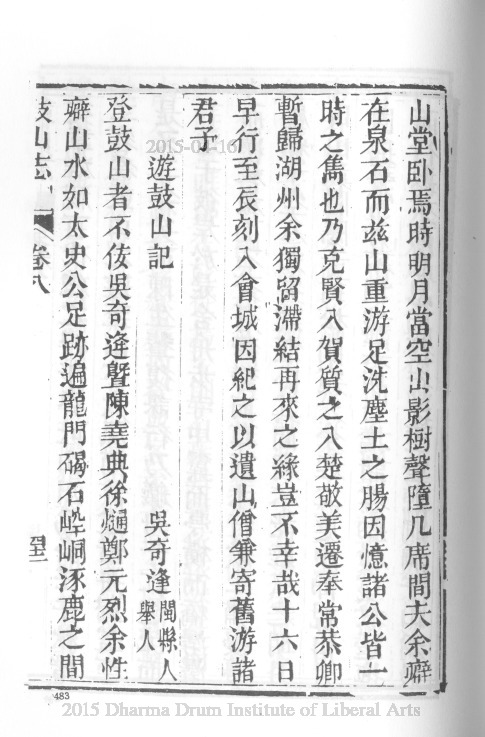 山堂卧焉時明月當空山影樹聲墮几席間夫余癖
在泉石而兹山重游足洗塵土之腸因憶諸公皆一
時之雋也乃克賢入賀質之入楚敬美遷奉常恭卿
暫歸湖州余獨留滯結再來之緣豈不幸哉十六日
早行至辰刻入會城因紀之以遺山僧兼寄舊游諸
君子
遊鼓山記
吳奇逢閩縣人舉人
登鼓山者不佞吳奇逢暨陳堯典徐𤊹鄭元烈余性
癖山水如太史公足跡遍龍門碣石崆峒涿鹿之間
鼓山志
卷八
483
2015 Dharma Drum Institute of Liberal Arts